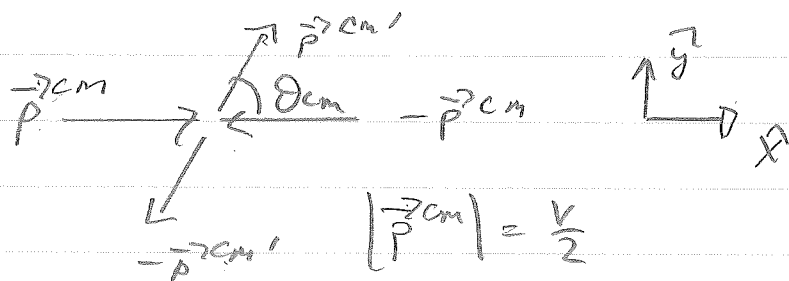 p⃗ cm'
y⃗
p⃗ cm θcm - p⃗ cm
x⃗
- p⃗ cm'
|p⃗ cm| = v/2